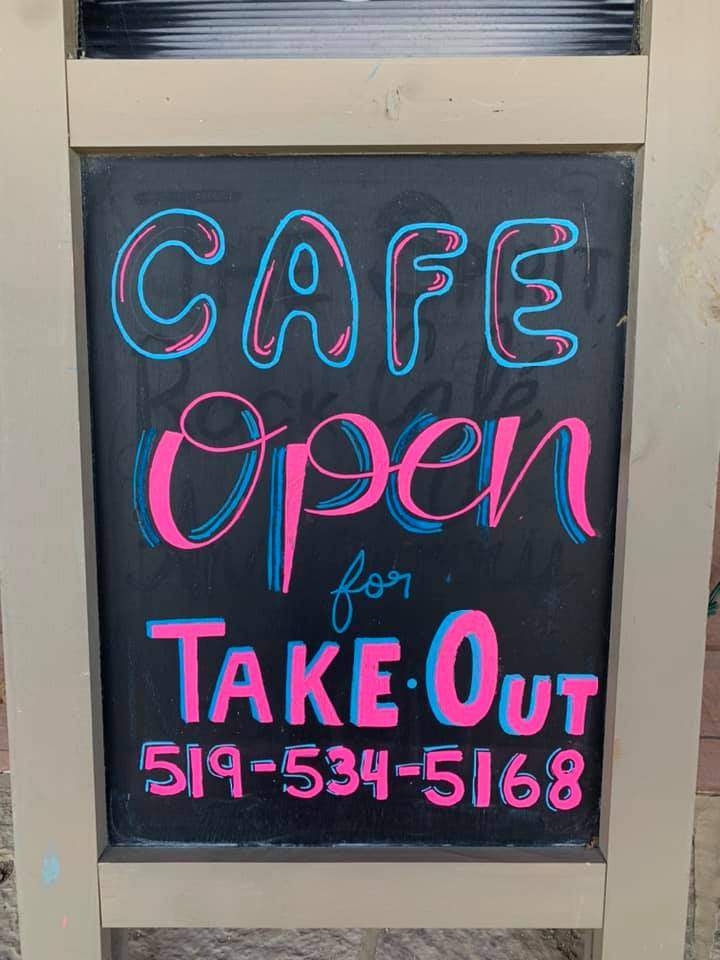 CAFE
Open
for
TAKE·OUT
519-534-5168